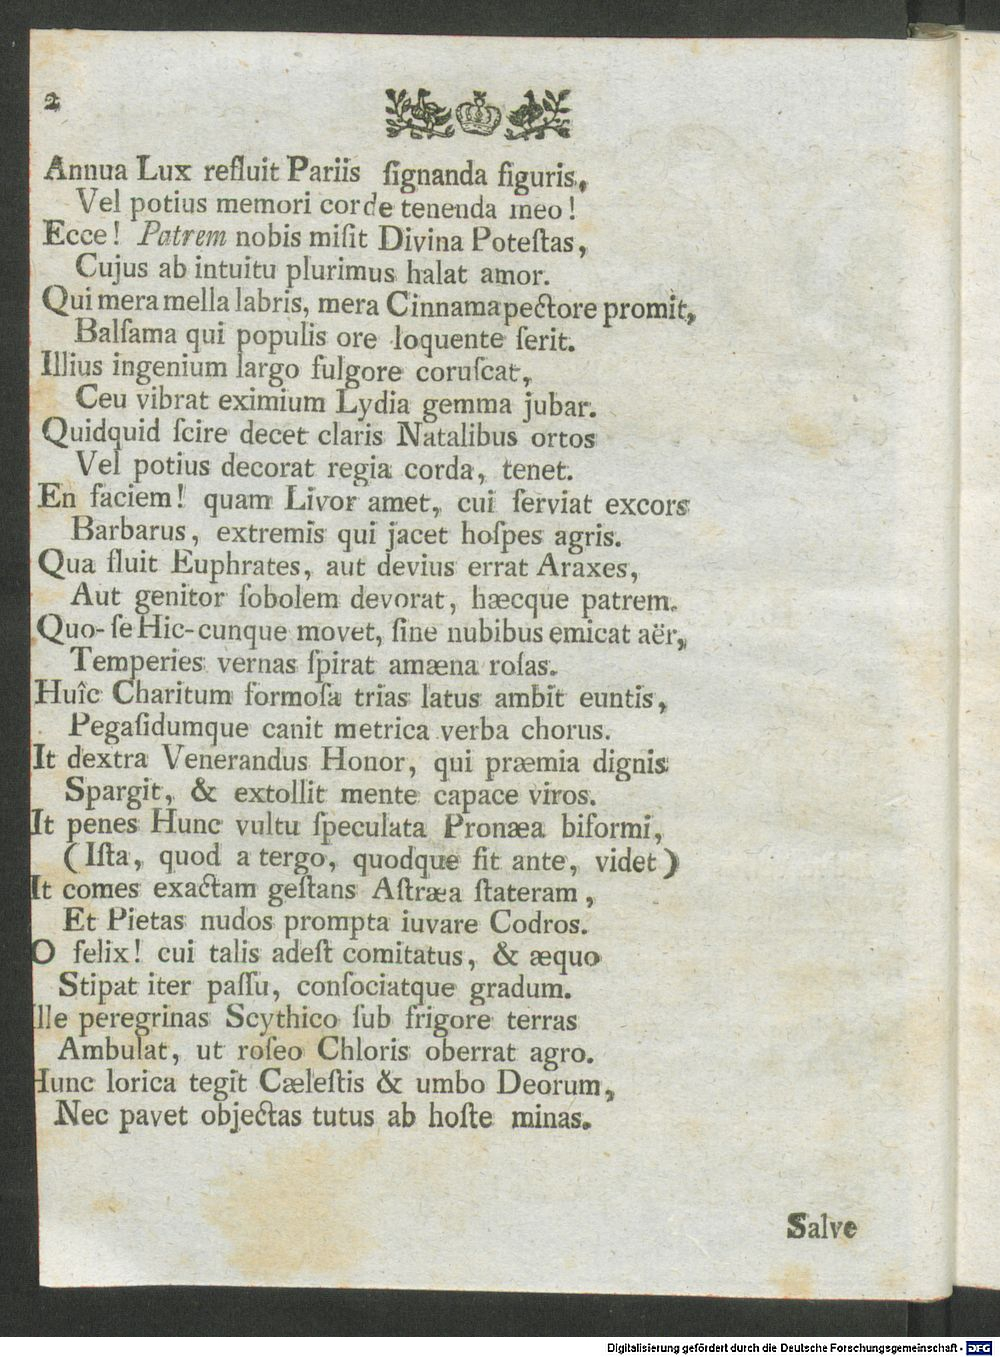 2
Annua Lux refluit Pariis ſignanda figuris,
Vel potius memori corde tenenda meo!
Ecce! Patrem nobis miſit Divina Poteſtas,
Cujus ab intuitu plurimus halat amor.
Qui mera mella labris, mera Cinnama pectore promit,
Balſama qui populis ore loquente ſerit.
Illius ingenium largo fulgore coruſcat,
Ceu vibrat eximium Lydia gemma jubar.
Quidquid ſcire decet claris Natalibus ortos
Vel potius decorat regia corda, tenet.
En faciem! quam Livor amet, cui ſerviat excors
Barbarus, extremis qui jacet hoſpes agris.
Qua fluit Euphrates, aut devius errat Araxes,
Aut genitor ſobolem devorat, hæcque patrem.
Quo-ſe Hic-cunque movet, ſine nubibus emicat aër,
Temperies vernas ſpirat amæna roſas.
Huîc Charitum formoſa trias latus ambit euntis,
Pegaſidumque canit metrica verba chorus.
It dextra Venerandus Honor, qui præmia dignis
Spargit, & extollit mente capace viros.
It penes Hunc vultu ſpeculata Pronæa biformi,
(Iſta, quod a tergo, quodque ſit ante, videt)
It comes exactam geſtans Aſtræa ſtateram,
Et Pietas nudos prompta iuvare Codros.
O felix! cui talis adeſt comitatus, & æquo
Stipat iter paſſu, conſociatque gradum.
Ille peregrinas Scythico ſub frigore terras
Ambulat, ut roſeo Chloris oberrat agro.
Hunc lorica tegit Cæleſtis & umbo Deorum,
Nec pavet objectas tutus ab hoſte minas.
Salve
Digitalisierung gefördert durch die Deutsche Forschungsgemeinschaft - DFG